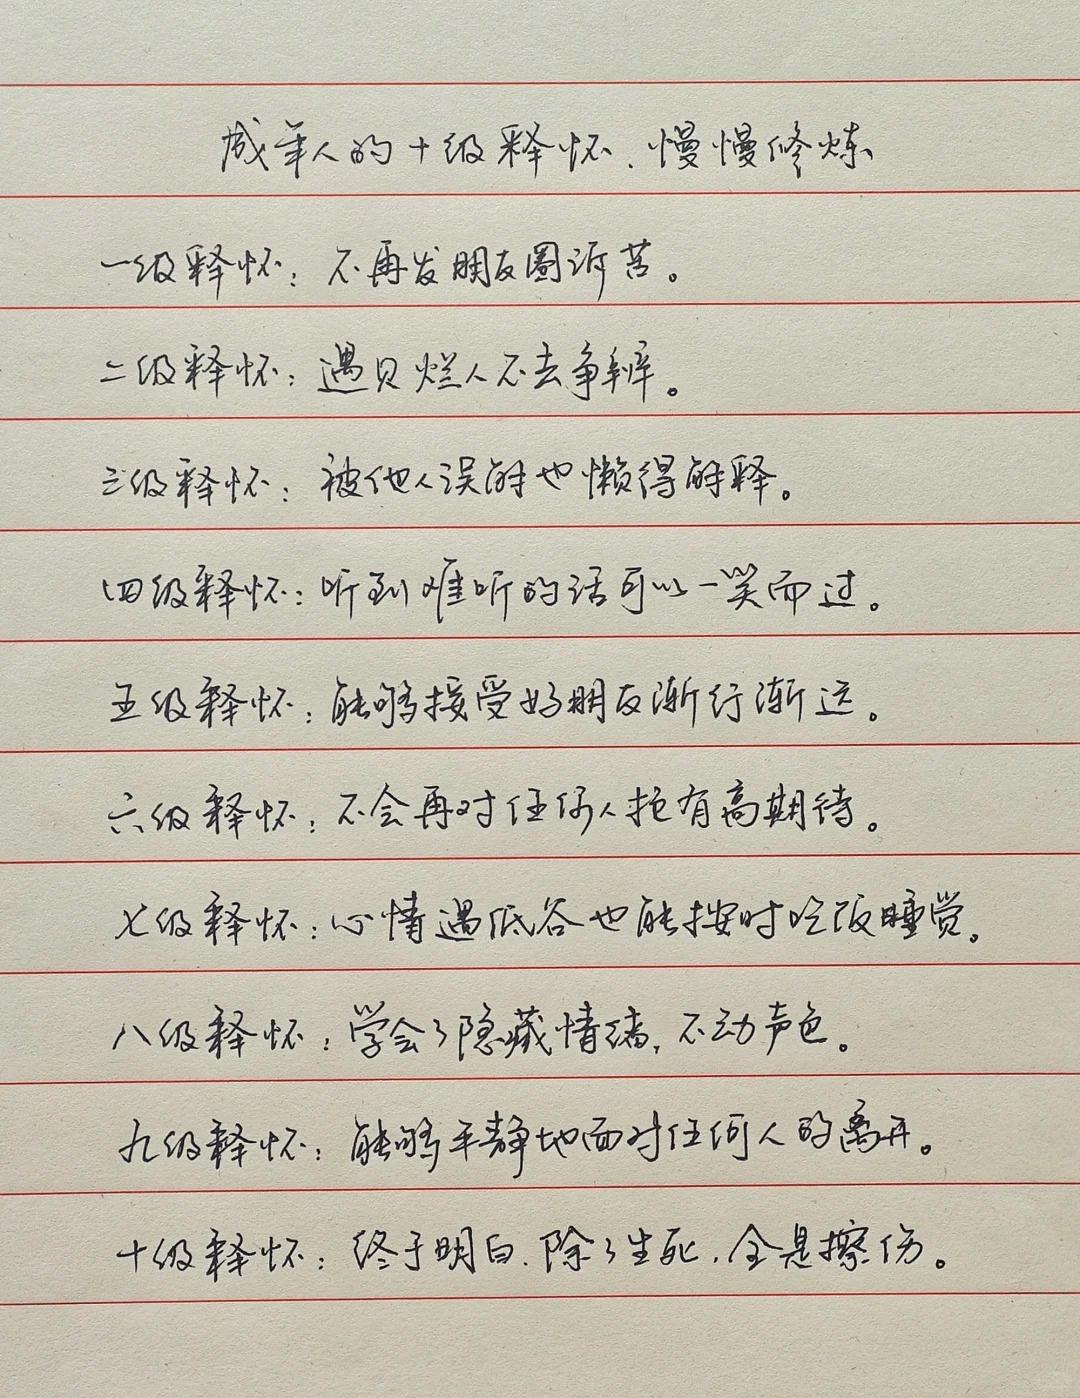 成年人的十级释怀、慢慢修炼
一级释怀：不再发朋友圈诉苦。
二级释怀：遇见烂人不去争辩。
三级释怀：被他人误解也懒得解释。
四级释怀：听到难听的话可以一笑而过。
五级释怀：能够接受好朋友渐行渐远。
六级释怀：不会再对任何人抱有高期待。
七级释怀：心情遇低谷也能按时吃饭睡觉。
八级释怀：学会了隐藏情绪，不动声色。
九级释怀：能够平静地面对任何人的离开。
十级释怀：终于明白、除了生死，全是擦伤。